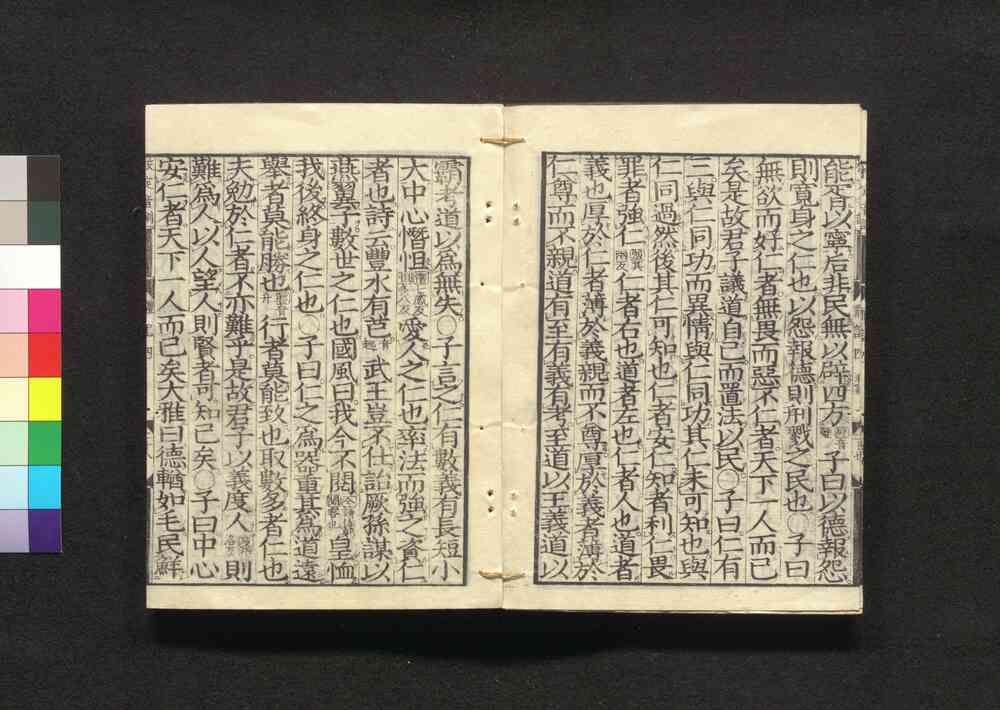 能胥以寧后非民無以辟四方子曰以德報怨
則寬身之仁也以怨報德則刑戮之民也○子曰
無欲而好仁者無畏而惡不仁者天下一人而已
矣是故君子議道自己而置法以民○子曰仁有
三與仁同功而異情與仁同功其仁未可知也與
仁同過然後其仁可知也仁者安仁知者利仁畏
罪者強仁仁者右也道者左也仁者人也道者
義也厚於仁者薄於義親而不尊厚於義者薄於
仁尊而不親道有至有義有考至道以王義道以
霸考道以爲無失○子言之仁有數義有長短小
大中心憯怛愛人之仁也率法而強之資仁
者也詩云豐水有芑武王豈不仕詒厥孫謀以
燕翼子數世之仁也國風曰我今不閱皇恤
我後終身之仁也○子曰仁之爲器重其爲道遠
舉者莫能勝也行者莫能致也取數多者仁也
夫勉於仁者不亦難乎是故君子以義度人則
難爲人以人望人則賢者可知已矣○子曰中心
安仁者天下一人而已矣大雅曰德輶如毛民鮮